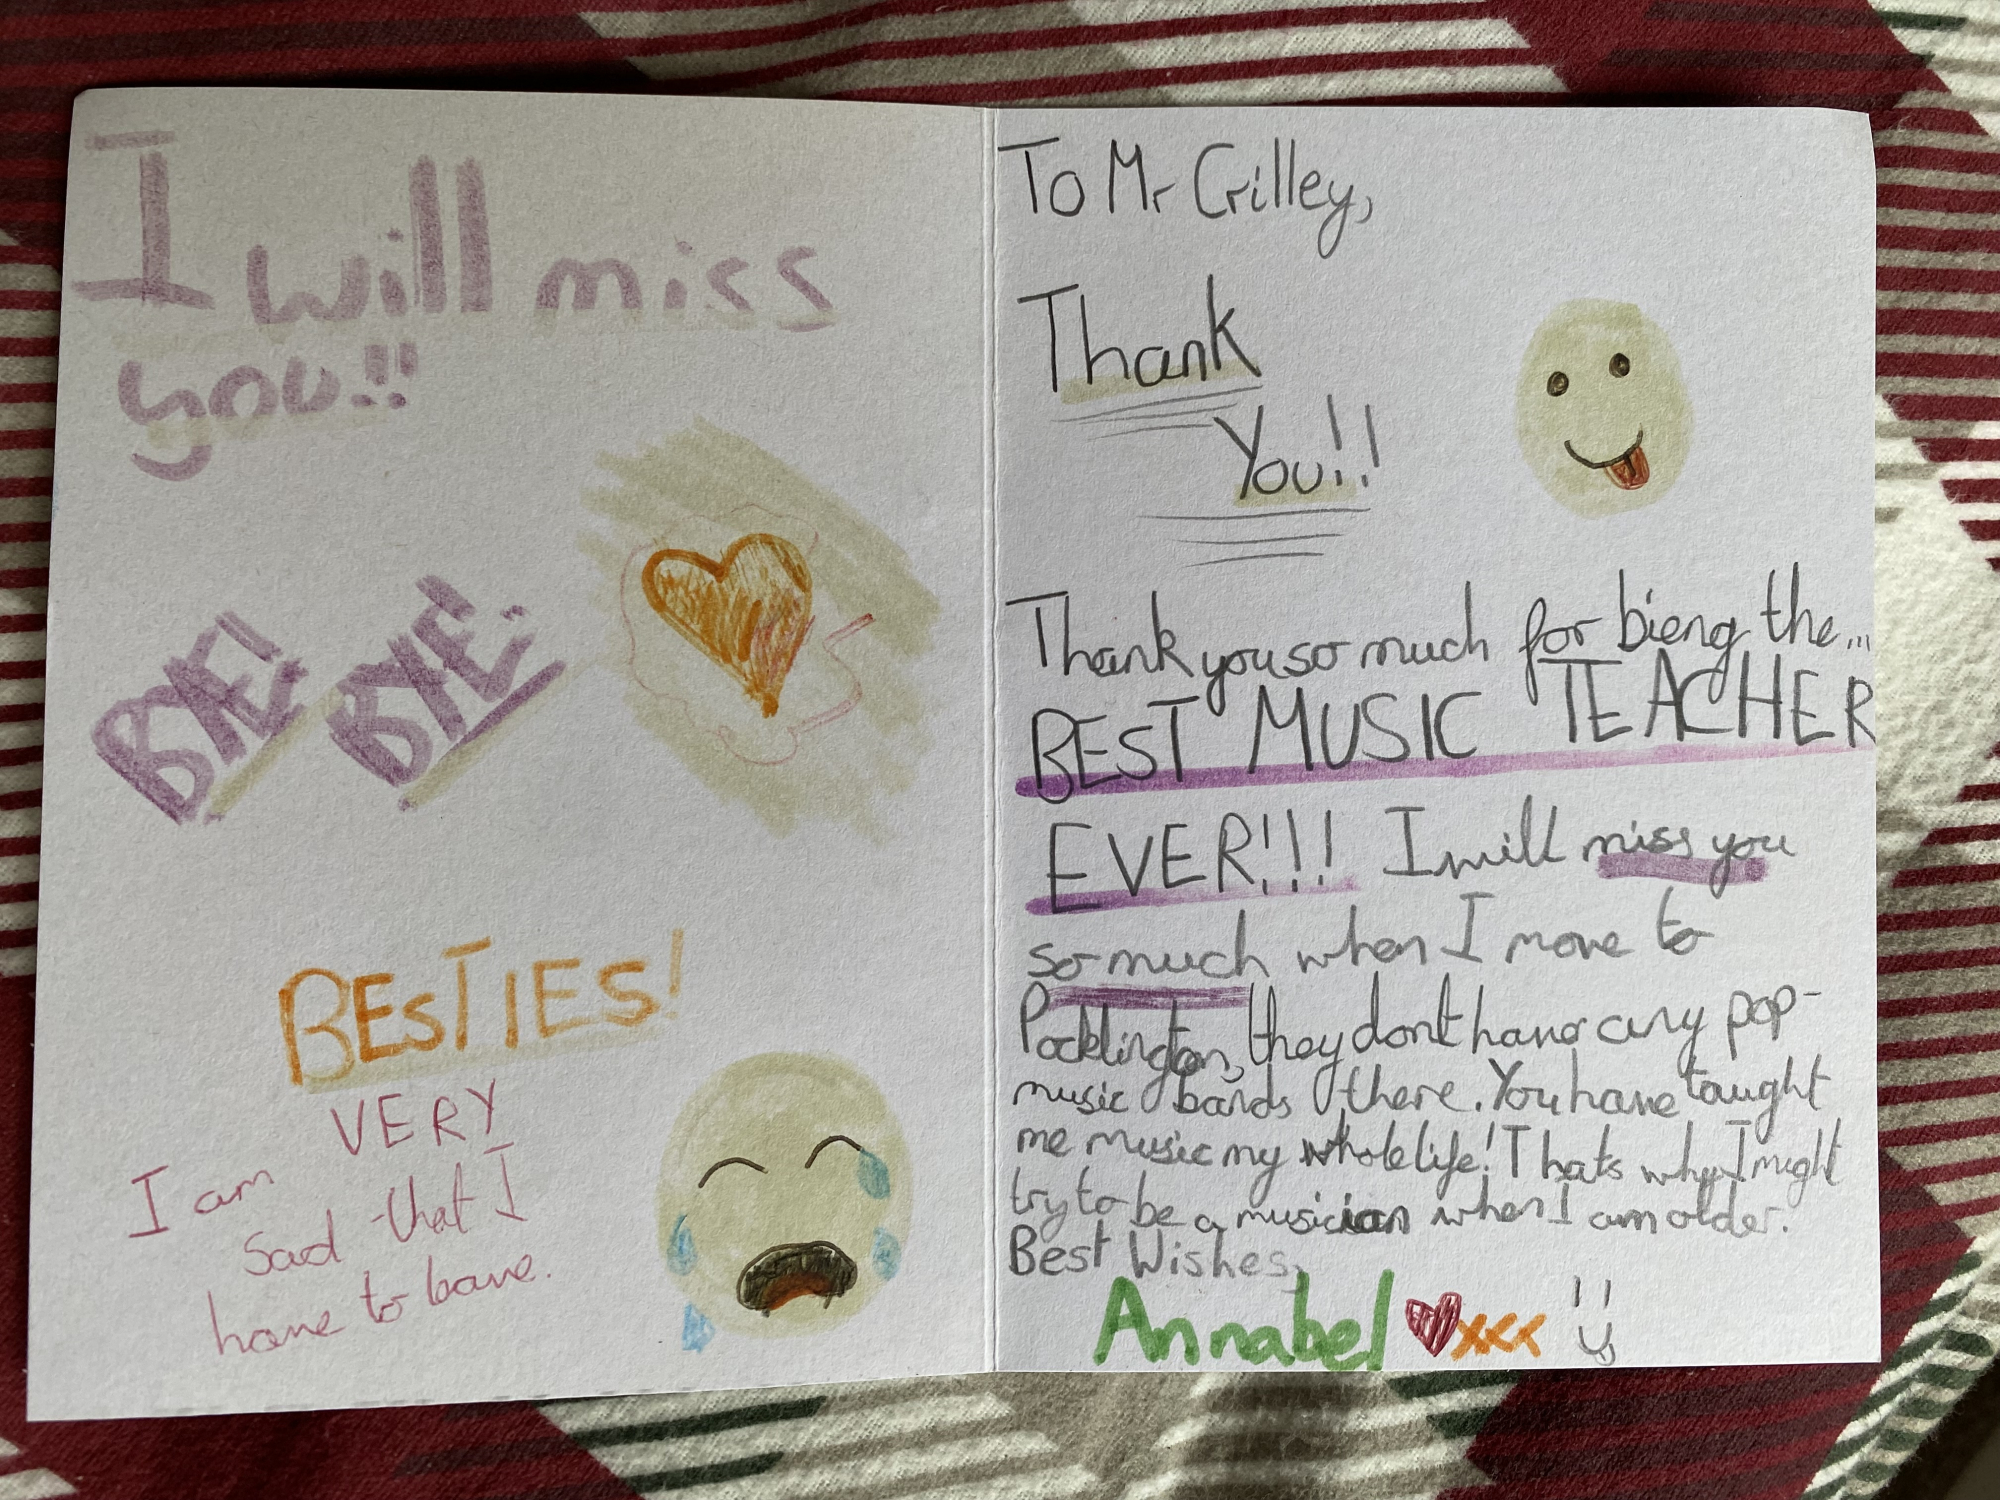 I will miss
you!!
BYE! BYE!
BESTIES!
VERY
I am
sad that I
have to leave.
To Mr Gilley,
Thank
You!!
Thank you so much for bieng the...
BEST MUSIC TEACHER
EVER!!! I will miss you
so much when I move to
Pocklington, they dont have any pop-
music bands there. You have taught
me music my whole life! Thats why I might
try to be a musician when I am older.
Best Wishes,
Annabel xxx